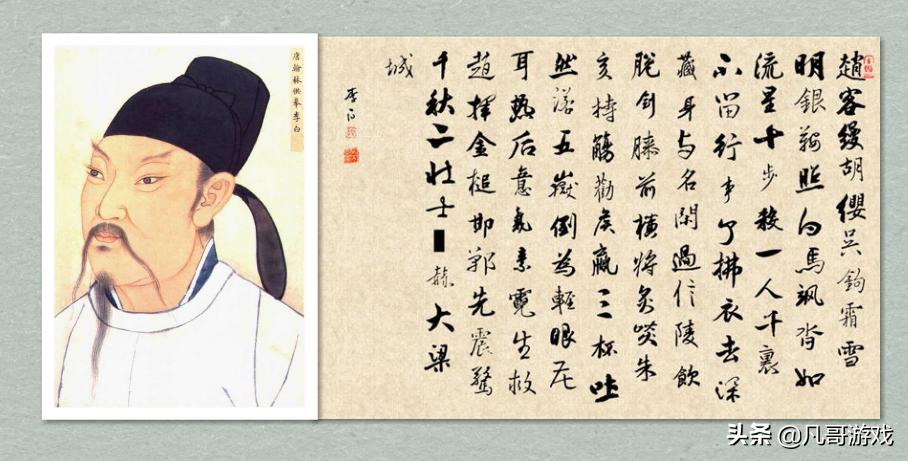 唐翰林供奉李白
趙客缦胡纓吳鉤霜雪
明銀鞍照白馬飒沓如
流星十步殺一人千裏
不留行事了拂衣去深
藏身与名閑過信陵飲
脫剑膝前横將炙啖朱
亥持觴勸侯嬴三杯吐
然诺五嶽倒為輕眼花
耳热后意氣素霓生救
趙揮金槌邯鄲先震驚
千秋二壮士■赫大梁
城
李白
头条 @凡哥游戏